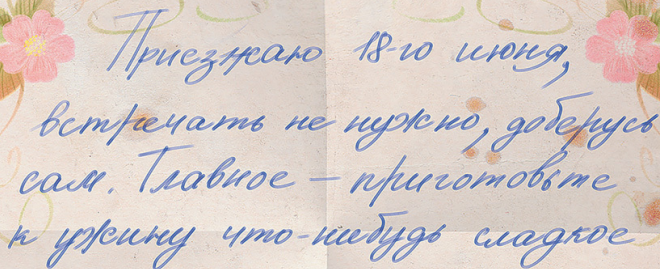 Приезжаю 18-го июня,
встречать не нужно, доберусь
сам. Главное – приготовьте
к ужину что-нибудь сладкое